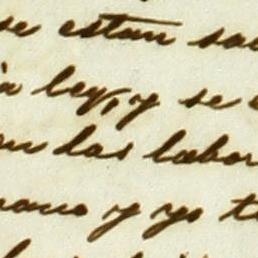 se estan sa
a ley, y se
las labor
mano y yo t